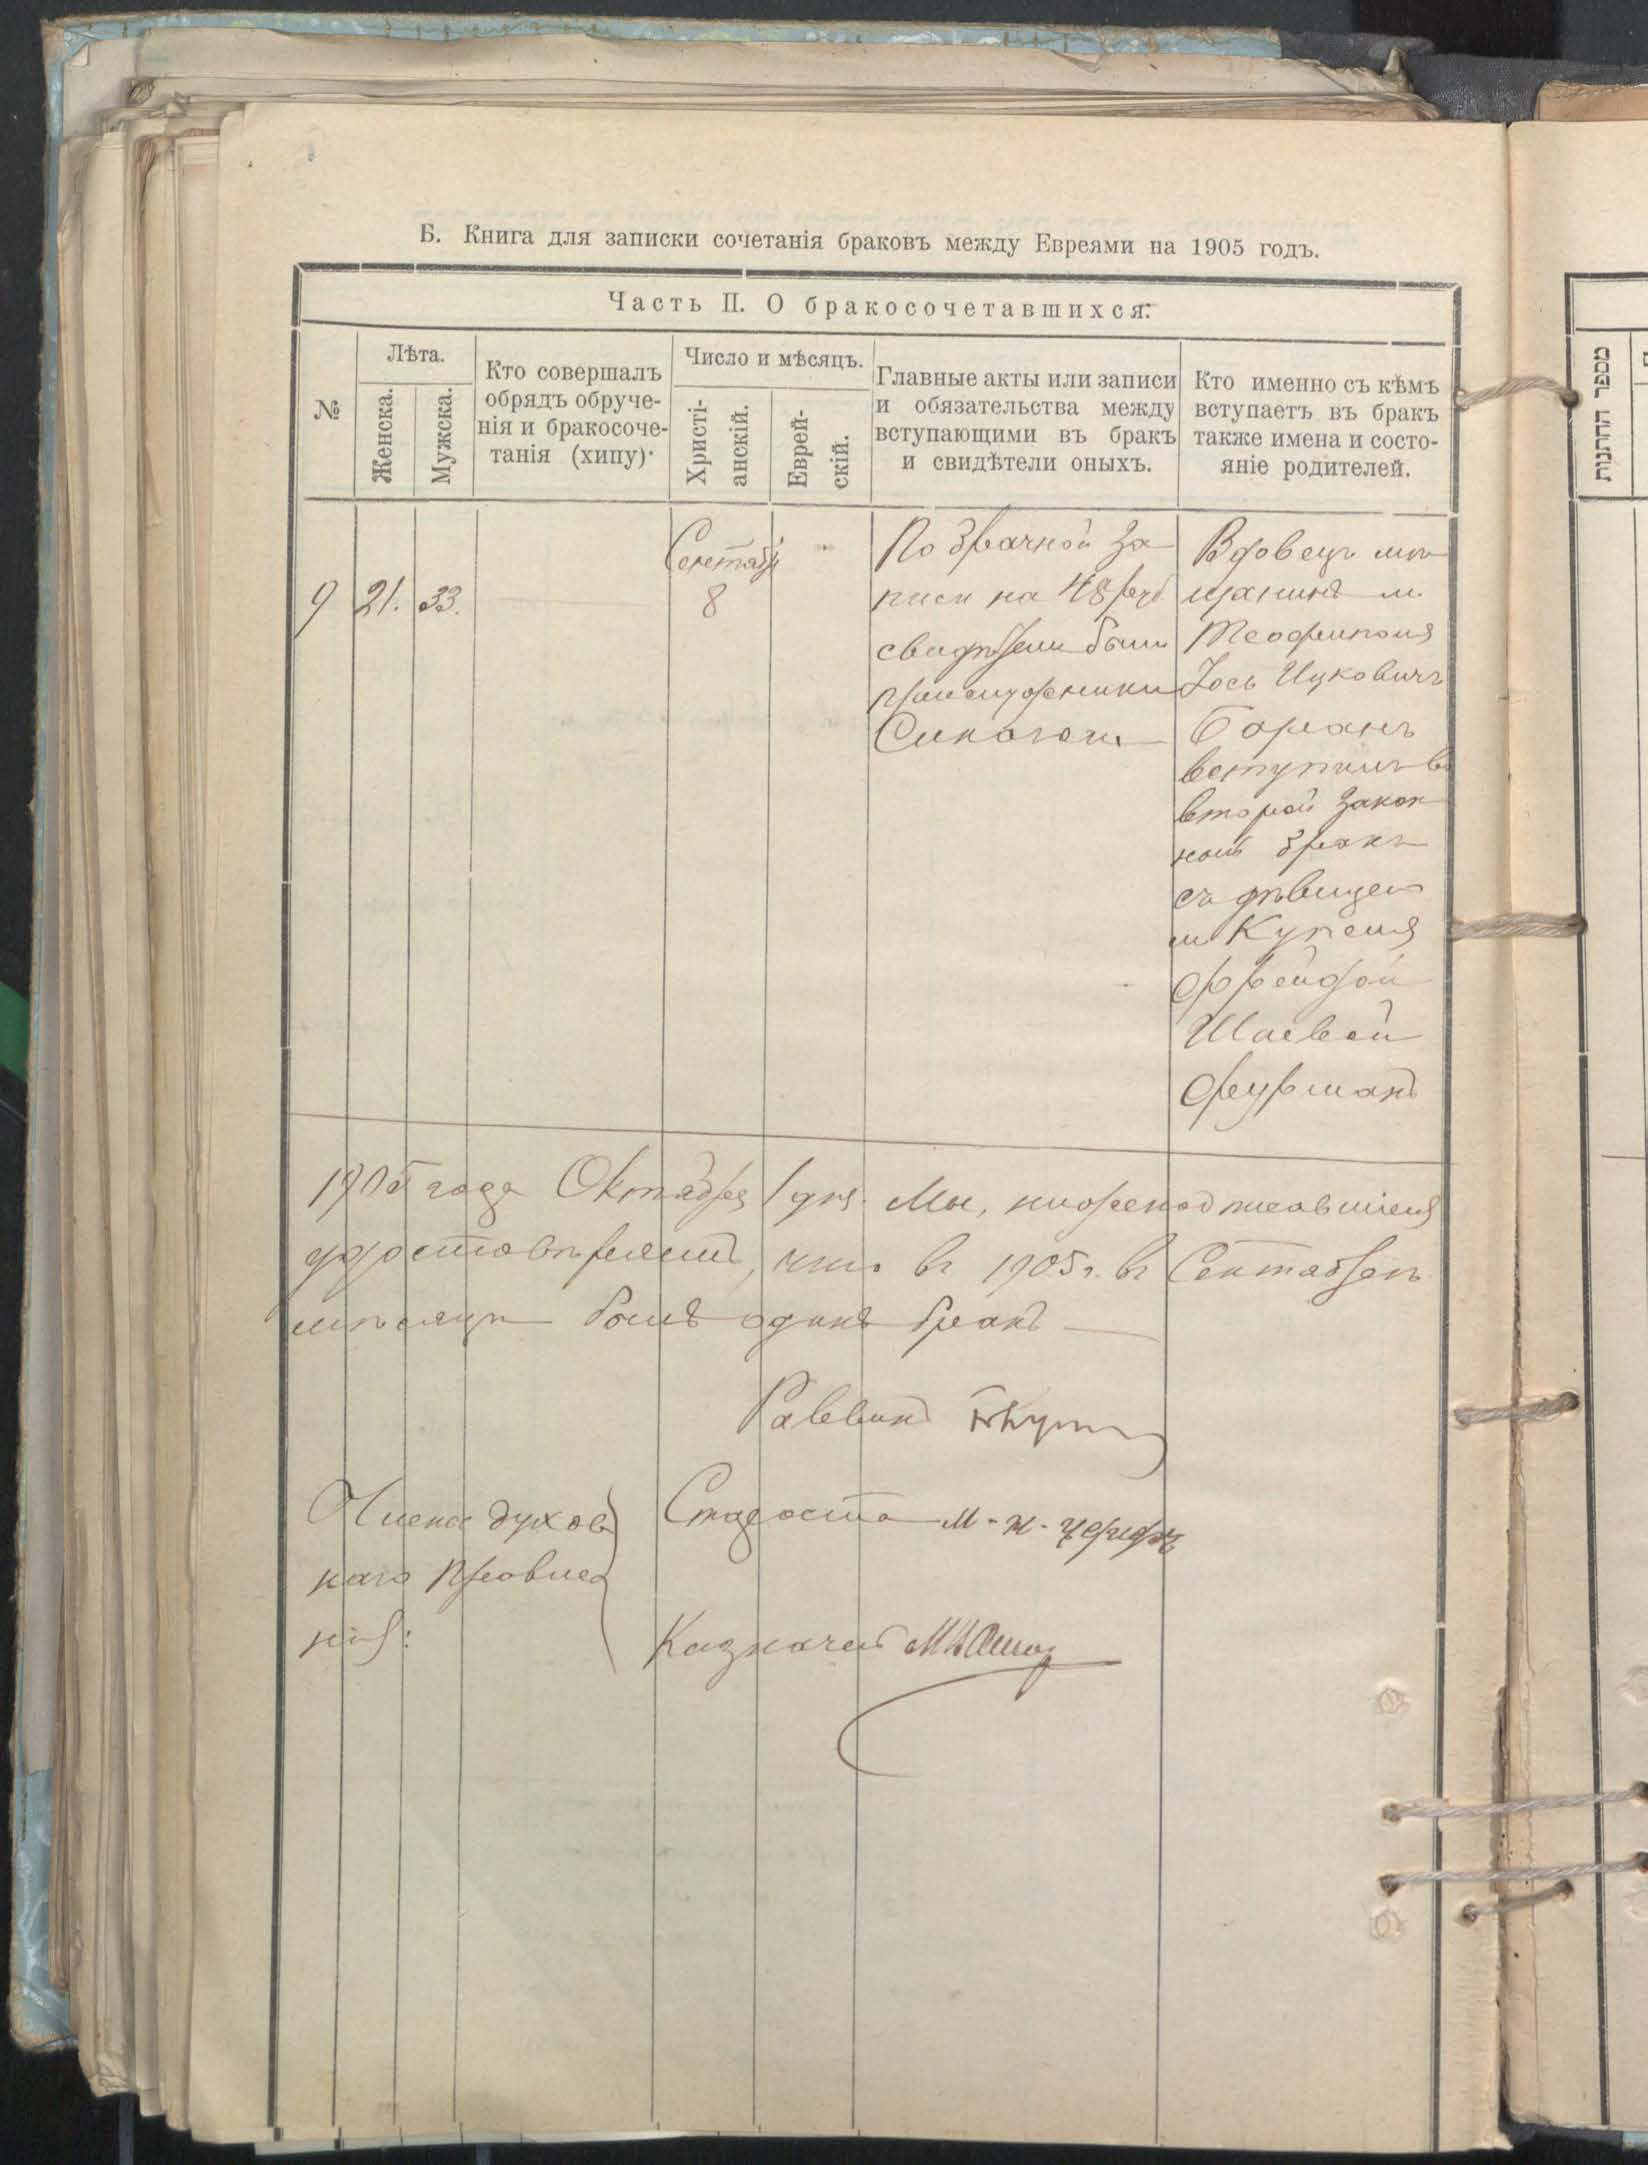 Б. Книга для записки сочетанія браковъ между Евреями на 1905 годъ.
Часть II. О бракосочетавшихся:
№
Лѣта.
Женска.
Мужска.
Кто совершалъ
обрядъ обруче-
нія и бракосоче-
танія (хипу).
Число и мѣсяцъ.
Христі-
анскій.
Еврей-
скій.
Главные акты или записи
и обязательства между
вступающими въ бракъ
и свидѣтели оныхъ.
Кто именно съ кѣмъ
вступаетъ въ бракъ
также имена и состо-
яніе родителей.
9
21.
33.
Сентябр
8
По брачной за
писи на 48 руб.
свидѣтели были
Синагоги
Вдовецъ мѣ
щанинъ м.
Теофиполя
Іось Ицковичъ
вступилъ во
второй закон
ный бракъ
съ дѣвицею
м. Купеля
Фрейдой
Шаевой
Фурманъ
1905 года Октября 1 дня. Мы, нижеподписавшіеся
удостовѣряемъ, что въ 1905 г. въ Сентябрѣ
мѣсяцѣ былъ одинъ бракъ
Раввинъ
Члены духов
наго Правле
нія:
Староста
Казначей
מספר החתונות